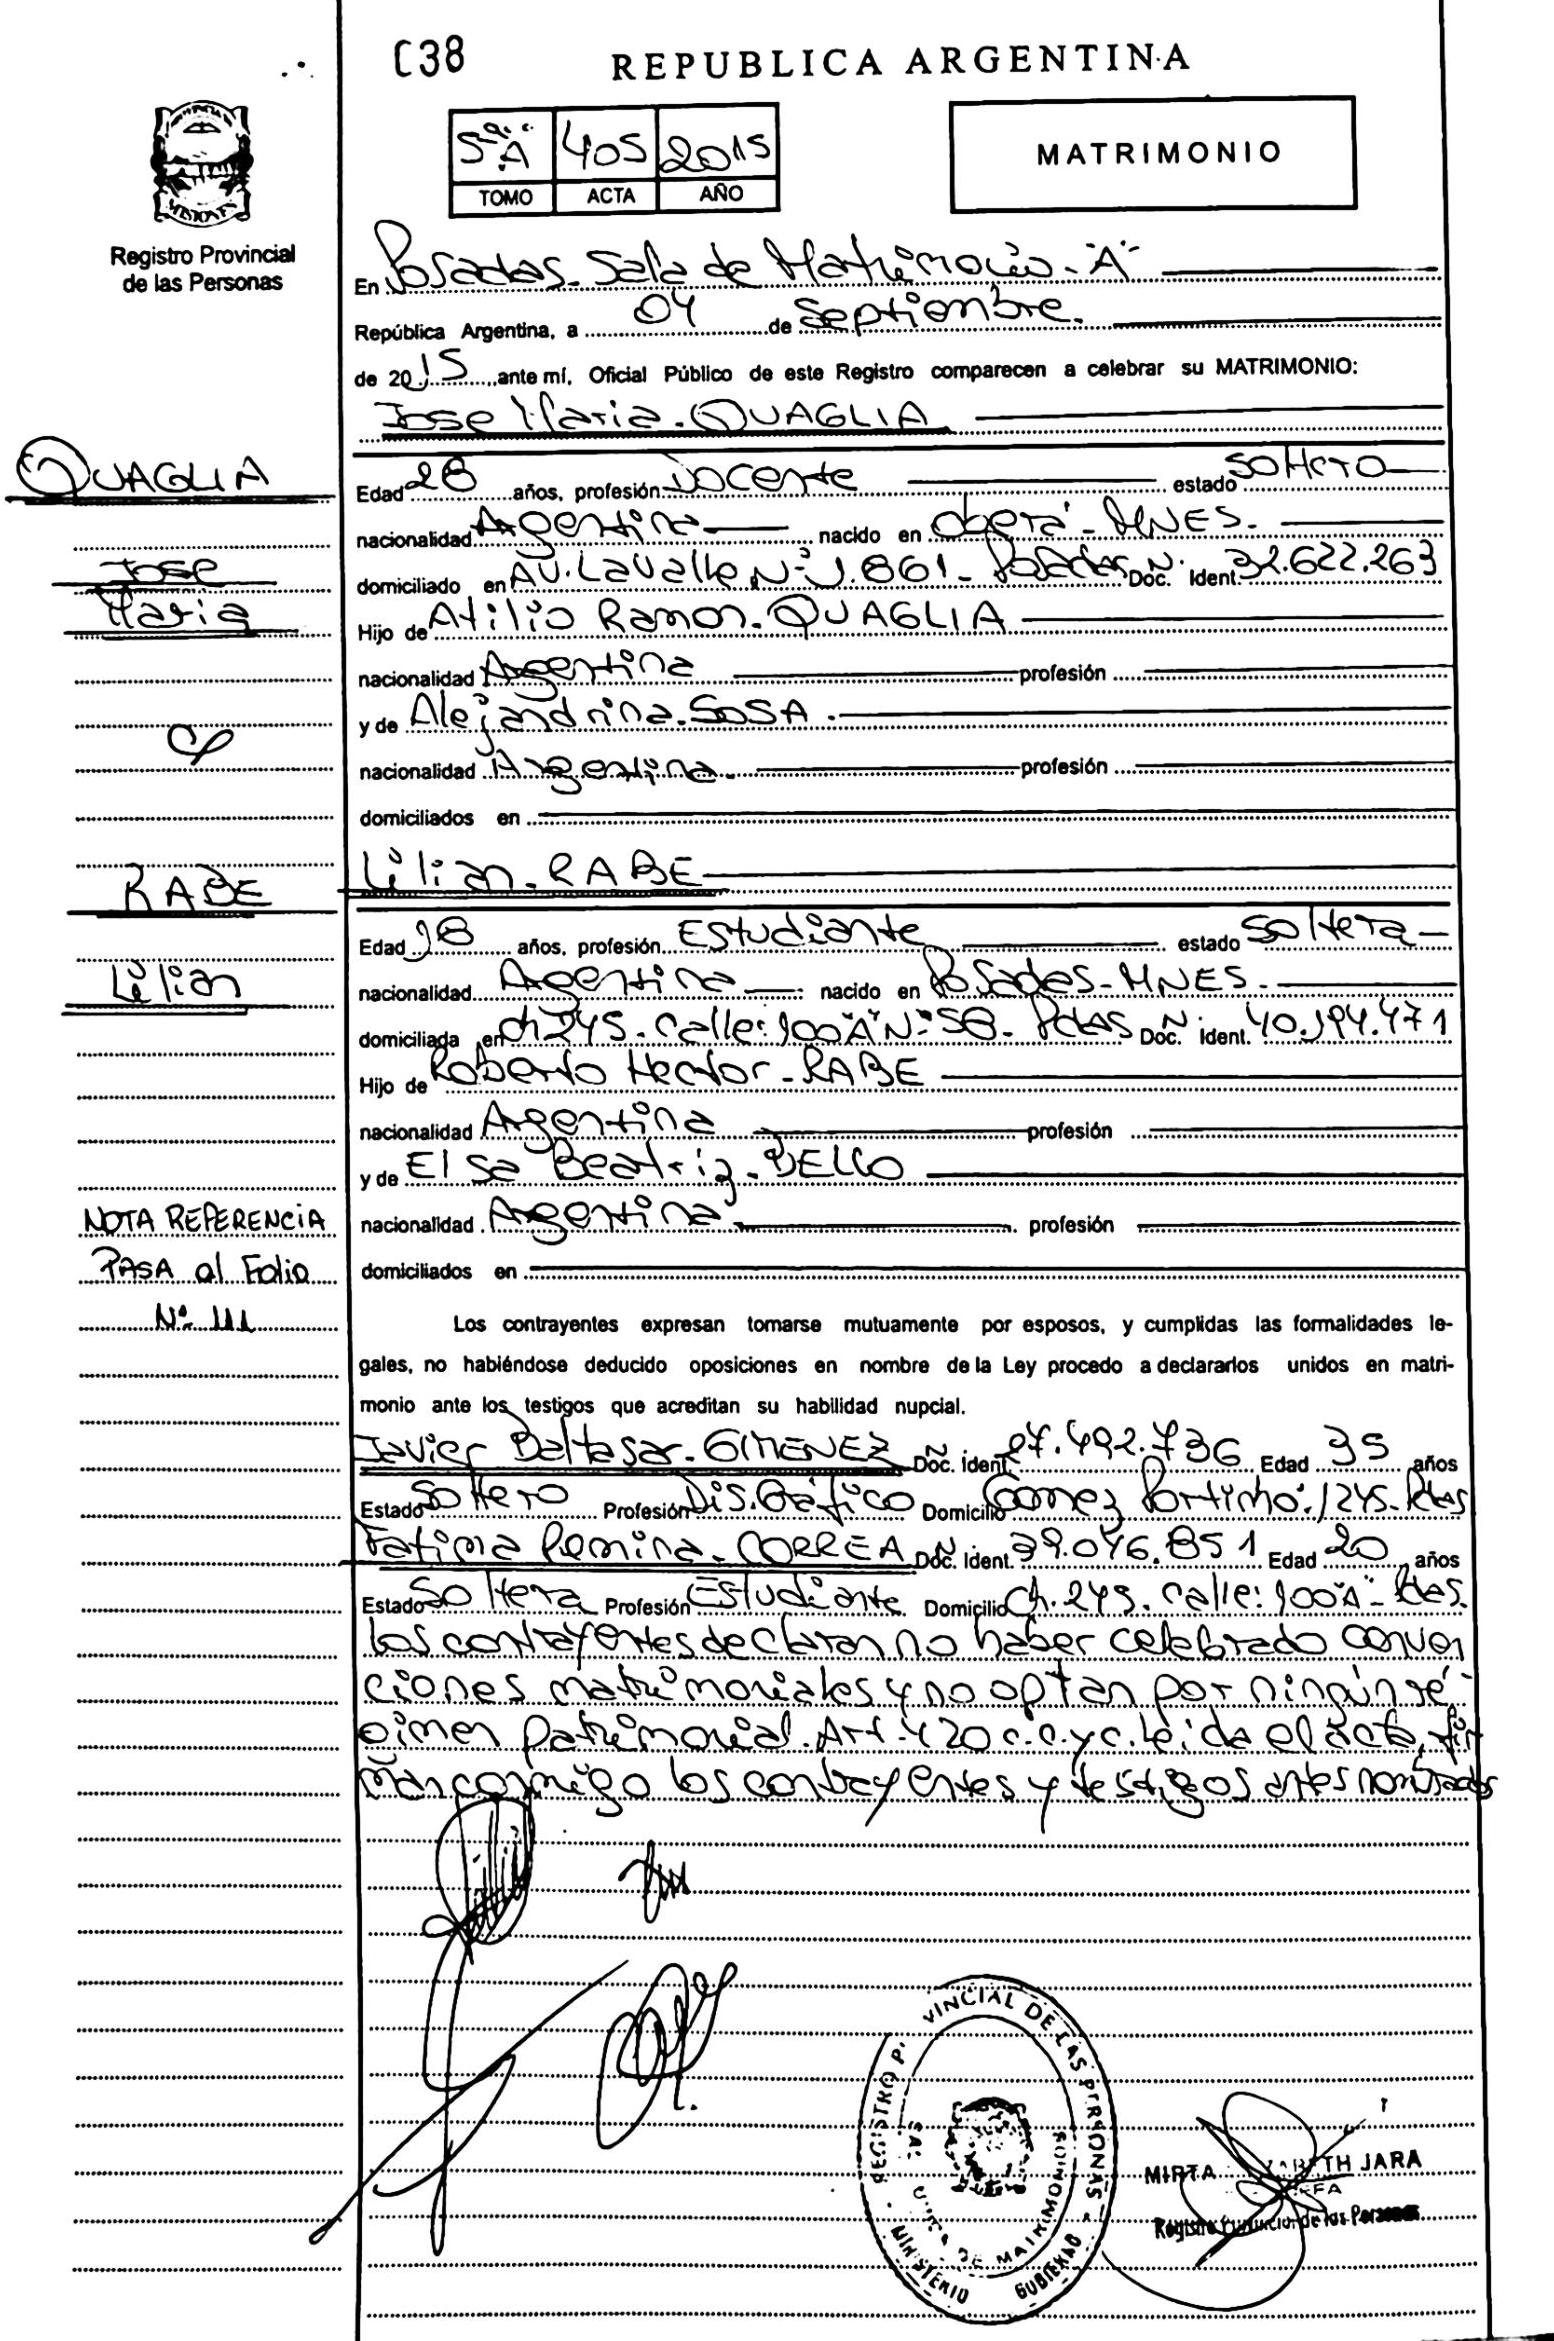 C38
REPUBLICA ARGENTINA
5ºA 405 2015
TOMO ACTA AÑO
MATRIMONIO
MISIONES
Registro Provincial
de las Personas
En Posadas - Sala de Matrimonio - "A"
República Argentina, a 04 de Septiembre.
de 2015 ante mí, Oficial Público de este Registro comparecen a celebrar su MATRIMONIO:
Jose Maria - QUAGLIA
QUAGLIA
Jose
Maria
Edad 28 años, profesión Docente estado soltero
nacionalidad Argentina nacido en Oberá - MNES.
domiciliado en AV. Lavalle Nº 1.861 - Posadas Doc. Nº Ident. 32.622.263
Hijo de Atilio Ramon - QUAGLIA
nacionalidad Argentina profesión
y de Alejandrina - SOSA.
nacionalidad Argentina. profesión
domiciliados en
Lilian - RABE
RABE
Lilian
Edad 18 años, profesión Estudiante estado soltera
nacionalidad Argentina nacido en Posadas - MNES.
domiciliada en ch 245 - Calle: 100 "A" Nº 58 - Pdas Doc. Nº ident. 40.194.471
Hijo de Roberto Hector - RABE
nacionalidad Argentina profesión
y de Elsa Beatriz - BELLO
nacionalidad Argentina profesión
domiciliados en
NOTA REFERENCIA
PASA al Folio
Nº 111
Los contrayentes expresan tomarse mutuamente por esposos, y cumplidas las formalidades le-
gales, no habiéndose deducido oposiciones en nombre de la Ley procedo a declararlos unidos en matri-
monio ante los testigos que acreditan su habilidad nupcial.
Javier Baltasar - GIMENEZ Doc. Nº Ident. 27.492.736 Edad 35 años
Estado Soltero Profesión Dis. Gráfico Domicilio Gomez Portinho: 1245 - Pdas
Fatima Romina - CORREA Doc. Nº ident. 39.046.851 Edad 20 años
Estado Soltera Profesión Estudiante Domicilio Ch. 245 - Calle: 100 "A" - Pdas.
los contrayentes declaran no haber celebrado conven
ciones matrimoniales y no optan por ningún ré-
gimen patrimonial. Art. 420 c.c.y c. Leída el acta, fir
man conmigo los contrayentes y testigos antes nombrados
REGISTRO P VINCIAL DE LAS PERSONAS
DE MATRIMONIO
MINISTERIO GOBIERNO
MIRTA TH JARA
Registro Provincial de las Personas